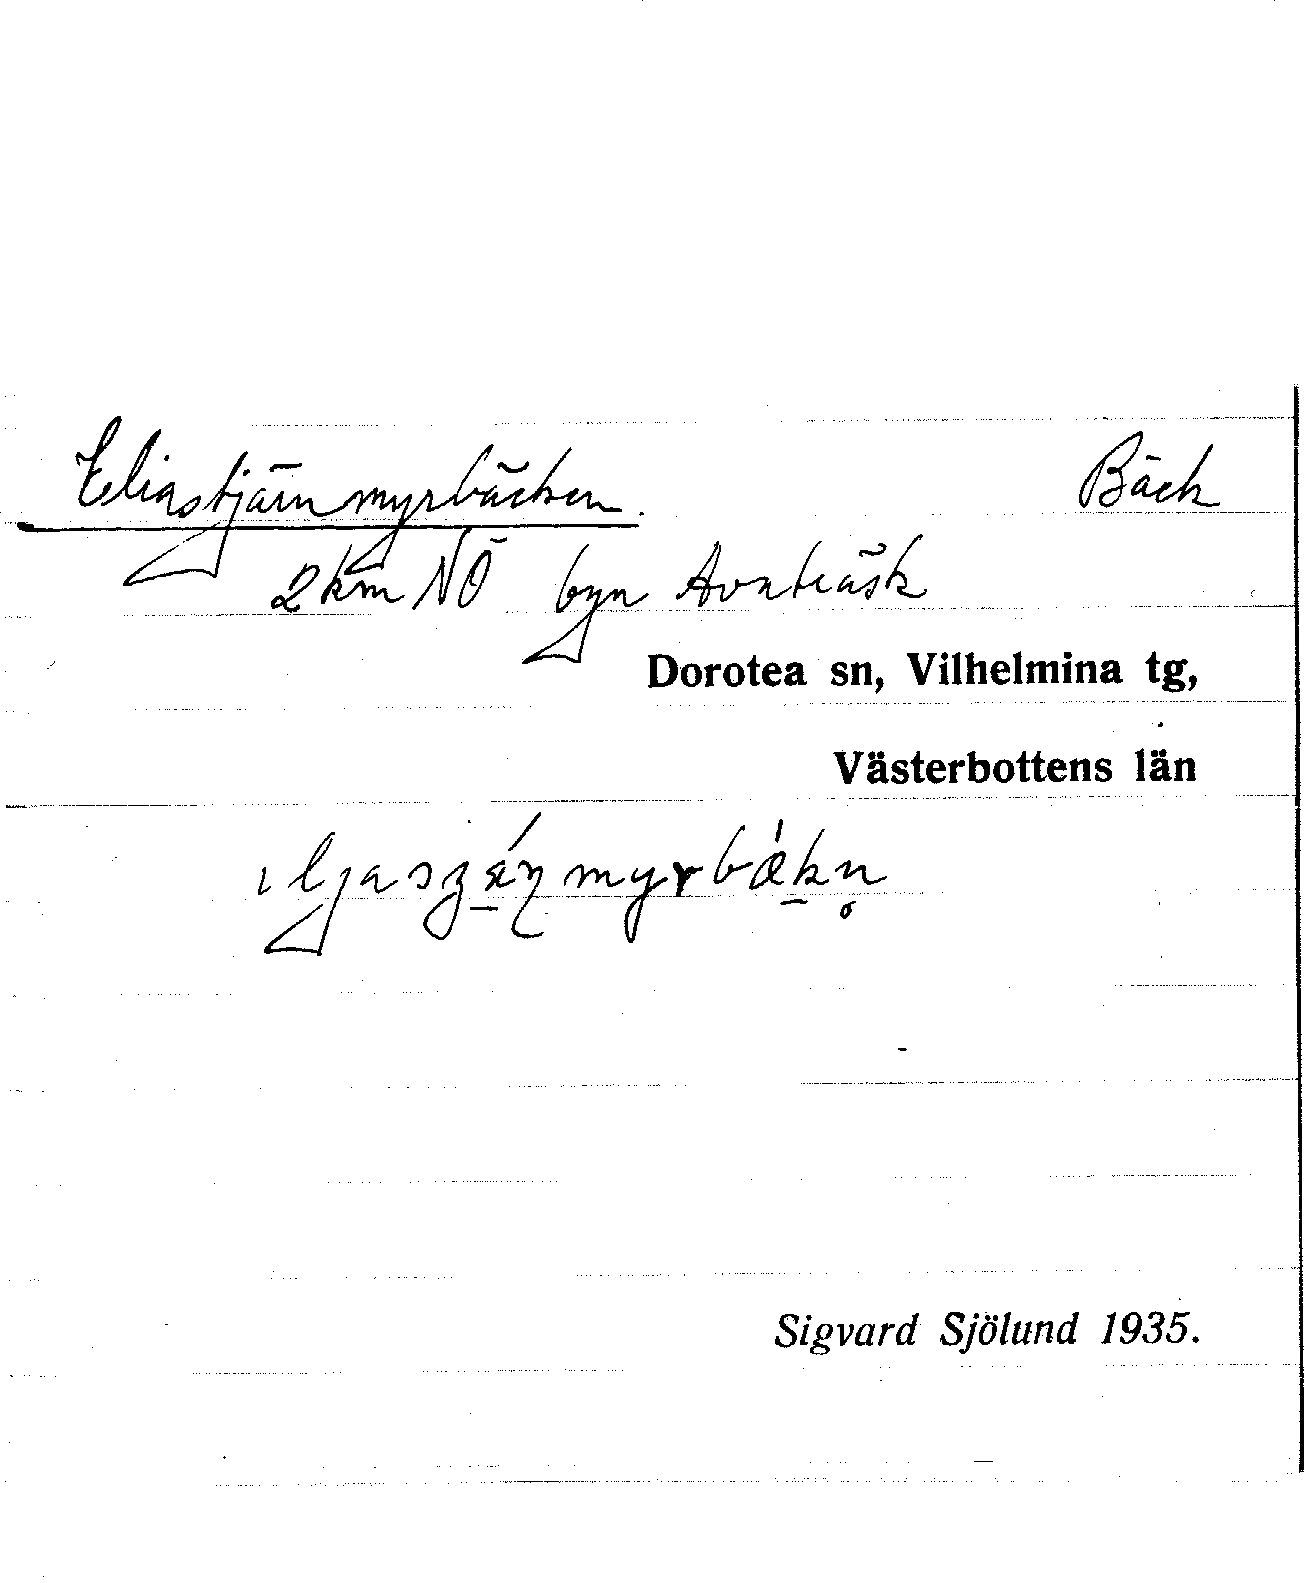 Eliastjärnmyrbäcken. Bäck
2 km NÖ byn Avaträsk
Dorotea sn, Vilhelmina tg,
Västerbottens län
Sigvard Sjölund 1935.